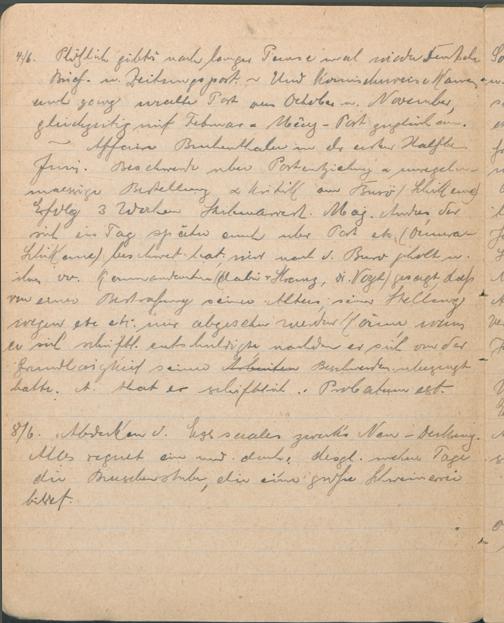 4/6. Plötzlich gibts nach langer Pause mal wieder deutsche
Brief- u. Zeitungspost. ~ Und komischerweise kamen
und ganz uralte Post aus October u. November,
gleichzeitig mit Februar & März-Post zugleich an.
~ Affaire Bruhenthaler in der ersten Hälfte
Juni. Beschwerde über Postentziehung & unregel-
mässige Bestellung & Kritik am Büro
Erfolg 3 Wochen Maj. Andres, der
sich ein Tag später auch über Post etc.
beschwert hat, wird nach d. Büro geholt u.
ihm v. Kommandanten gesagt, dass
von einer Bestrafung seines Alters, seiner Stellung
wegen etc etc. nur abgesehen werden könne wenn
er sich schriftl. entschuldigte nachdem er sich von der
Grundlosigkeit seiner Beschwerden überzeugt
hatte. A. that es schriftlich. Probatum est.
8/6. Abdecken d. Esssaales zwecks Neu-Deckung.
Alles regnet ein und durch, desgl. mehre Tage
die Burschenstube, die eine große Schweinerei
bildet.